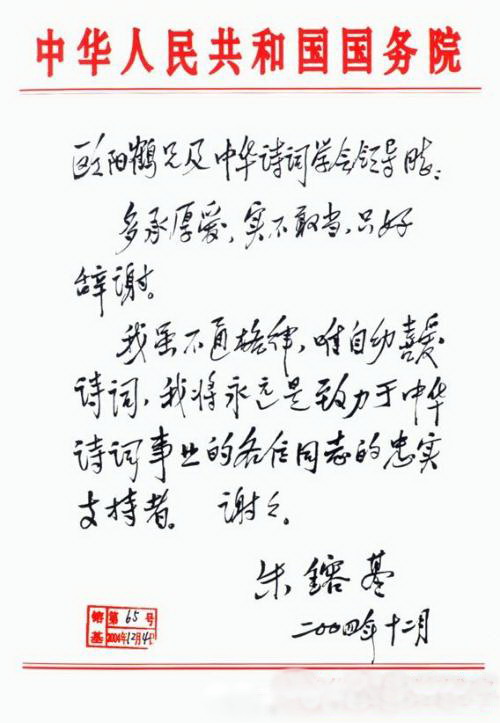 中华人民共和国国务院
欧阳鹤兄及中华诗词学会领导同志:
多承厚爱,实不敢当,只好
辞谢。
我虽不通格律,唯自幼喜爱
诗词,我将永远是致力于中华
诗词事业的各位同志的忠实
支持者。 谢々。
朱镕基
二〇〇四年十二月
镕基
第65号
2004年12月4日